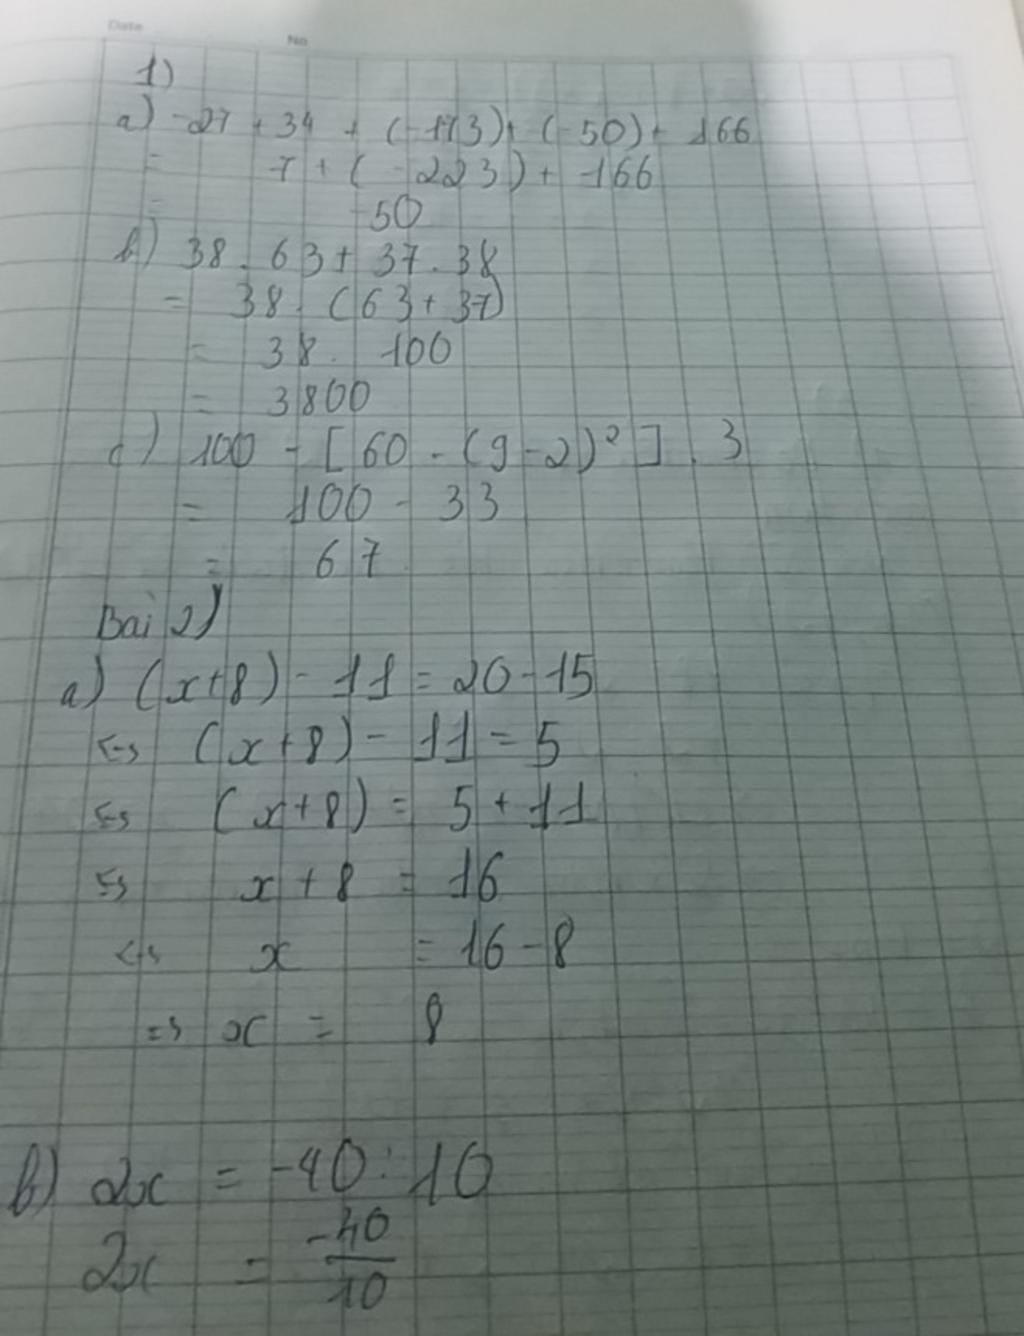 Date
No
1)
a) -27 + 34 + (-173) + (-50) + 166
= 7 + (-223) + 166
= -50
b) 38 . 63 + 37 . 38
= 38 . (63 + 37)
= 38 . 100
= 3800
c) 100 - [60 - (9 - 2)² ] . 3
= 100 - 33
= 67
Bài 2)
a) (x+8) - 11 = 20 - 15
<=> (x+8) - 11 = 5
<=> (x+8) = 5 + 11
<=> x + 8 = 16
<=> x = 16 - 8
=> x = 8
b) 2x = -40 : 10
2x = -40/10